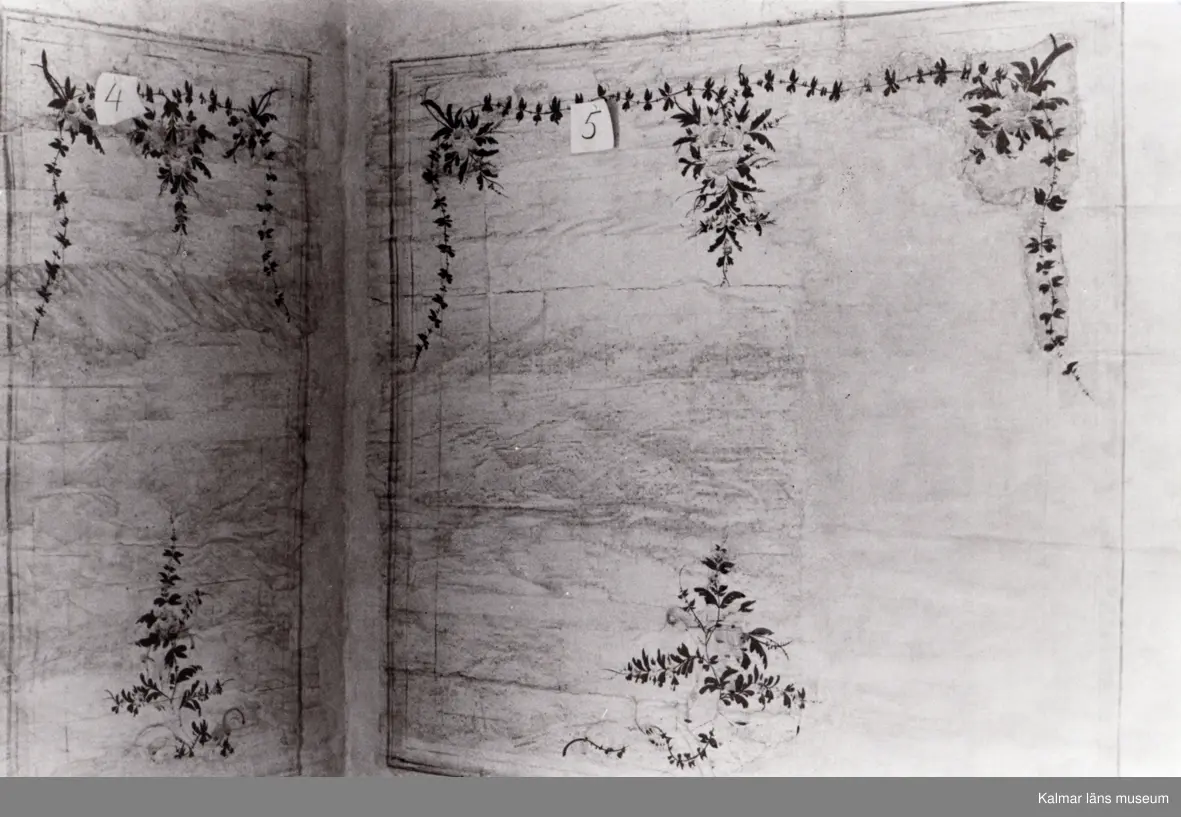 4
5
Kalmar läns museum